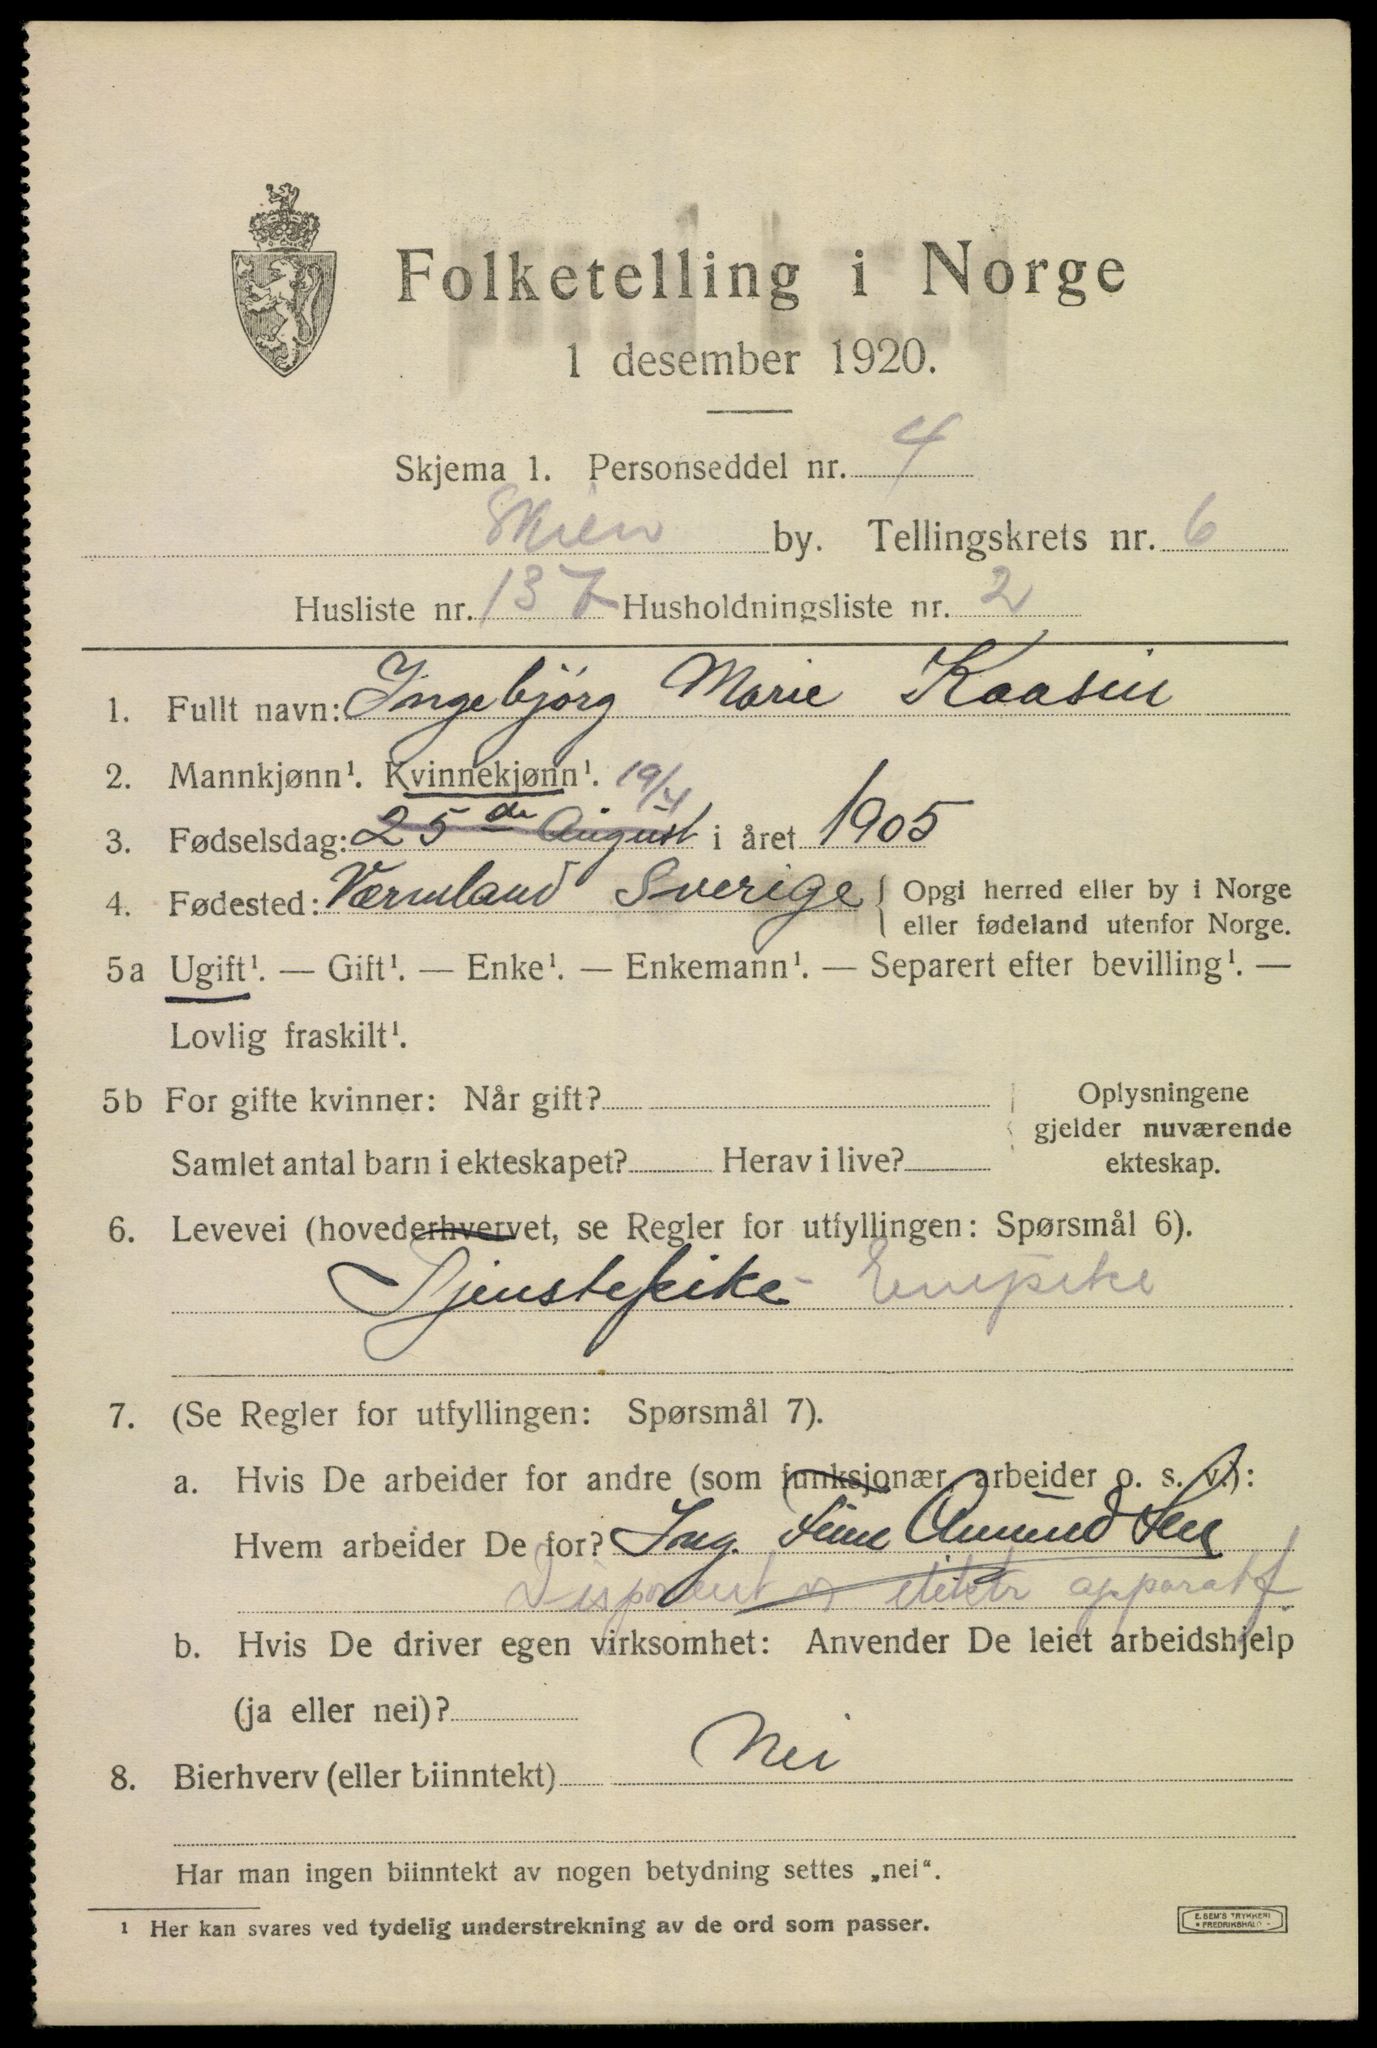 Folketelling i Norge
1 desember 1920.
Skjema 1. Personseddel nr. 4
Skien by. Tellingskrets nr. 6
Husliste nr. 137 Husholdningsliste nr. 2
1. Fullt navn: Ingebjørg Marie Kaasin
2. Mannkjønn¹. Kvinnekjønn¹. 19/4
3. Fødselsdag: 25de August i året 1905
4. Fødested: Værmland Sverige { Opgi herred eller by i Norge
eller fødeland utenfor Norge.
5a Ugift¹. — Gift¹. — Enke¹. — Enkemann¹. — Separert efter bevilling¹. —
Lovlig fraskilt¹.
5b For gifte kvinner: Når gift? Oplysningene
gjelder nuværende
Samlet antal barn i ekteskapet? Herav i live? ekteskap.
6. Levevei (hovederhvervet, se Regler for utfyllingen: Spørsmål 6).
Tjenstepike - Enepike
7. (Se Regler for utfyllingen: Spørsmål 7).
a. Hvis De arbeider for andre (som funksjonær, arbeider o. s. v.):
Hvem arbeider De for? Ing. Amund
Disponent elektr apparatf.
b. Hvis De driver egen virksomhet: Anvender De leiet arbeidshjelp
(ja eller nei)?
8. Bierhverv (eller biinntekt) Nei
Har man ingen biinntekt av nogen betydning settes „nei“.
¹ Her kan svares ved tydelig understrekning av de ord som passer.
E. SEM'S TRYKKERI
• FREDRIKSHALD •